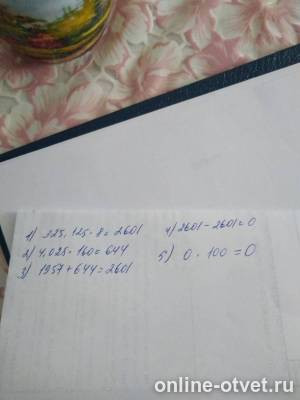 1) 325,125 · 8 = 2601
2) 4,025 · 160 = 644
3) 1957 + 644 = 2601
4) 2601 - 2601 = 0
5) 0 · 100 = 0
online-otvet.ru